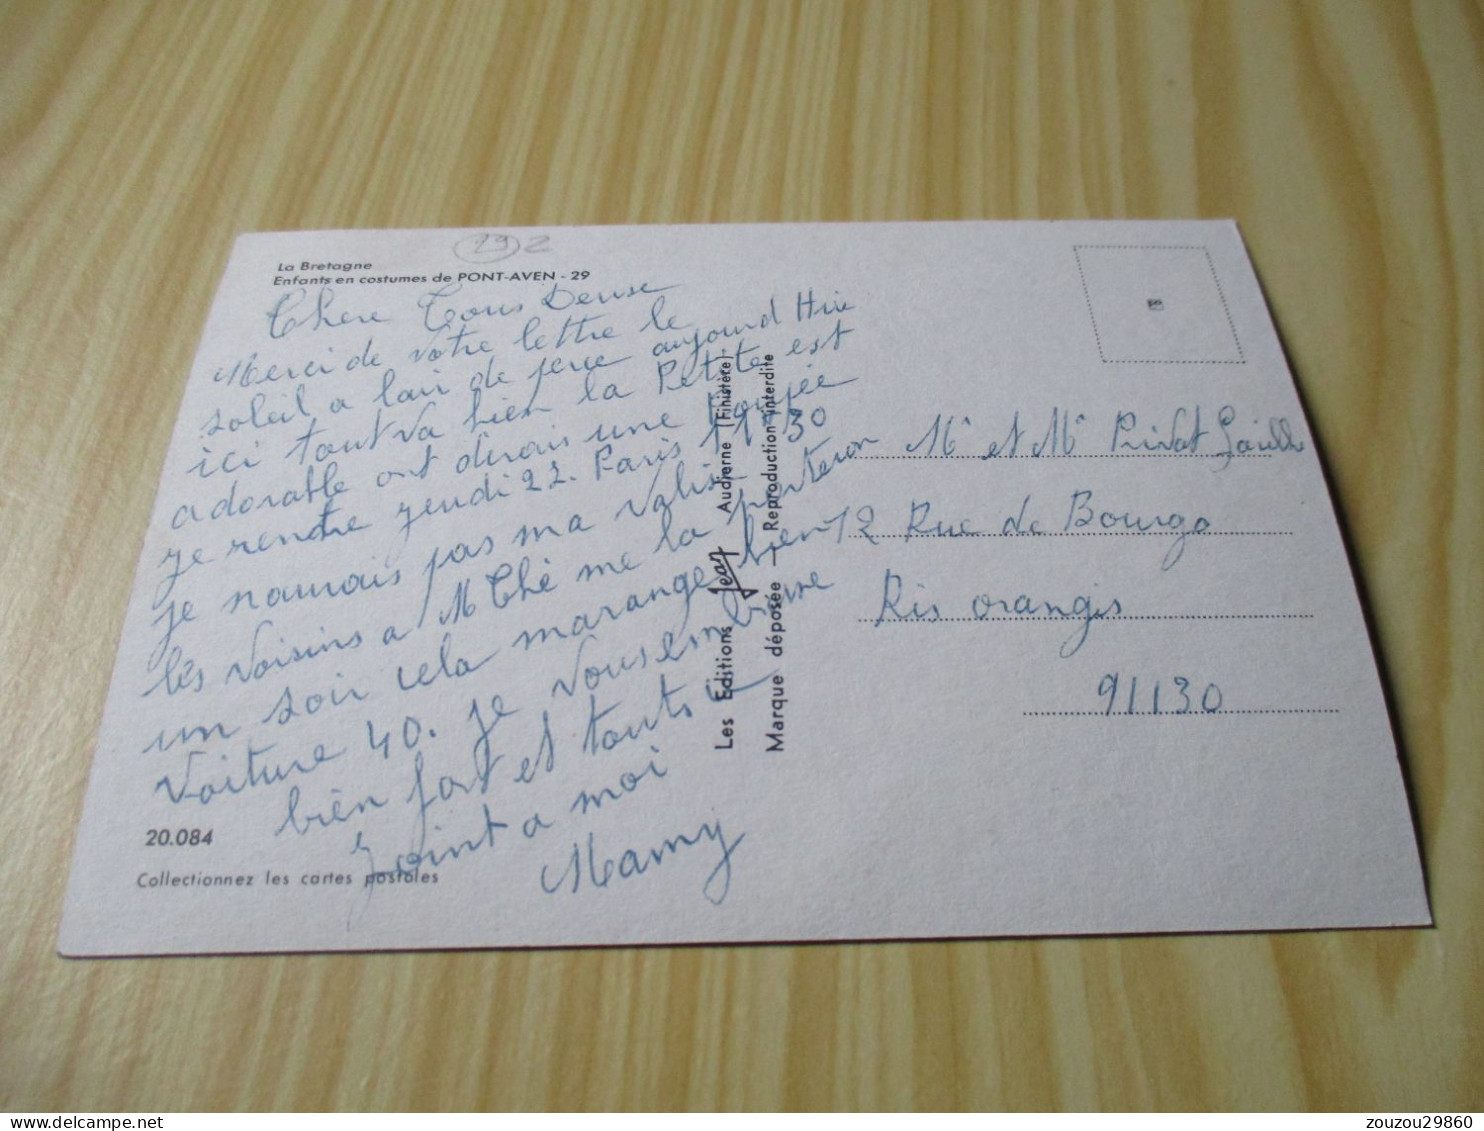 29 2
La Bretagne
Enfants en costumes de PONT-AVEN - 29
Chere Tous Deuse
Merci de votre lettre le
soleil a lair de perce aujourd Hui
ici tout va bien la Petite est
adorable ont dirais une Poupée
je rentre jeudi 22. Paris 11H30
je naurais pas ma valise
les voisins a M Thé me la porteron
un soir cela marange bien
Voiture 40. je vous embrase
bien fort et touts
joint a moi
Mamy
20.084
Collectionnez les cartes postales
Les Editions Jean Audierne (Finistère)
Marque déposée - Reproduction interdite
Mr et Me Privat
12 Rue de Bourgo
Ris orangis
91130
zouzou29860